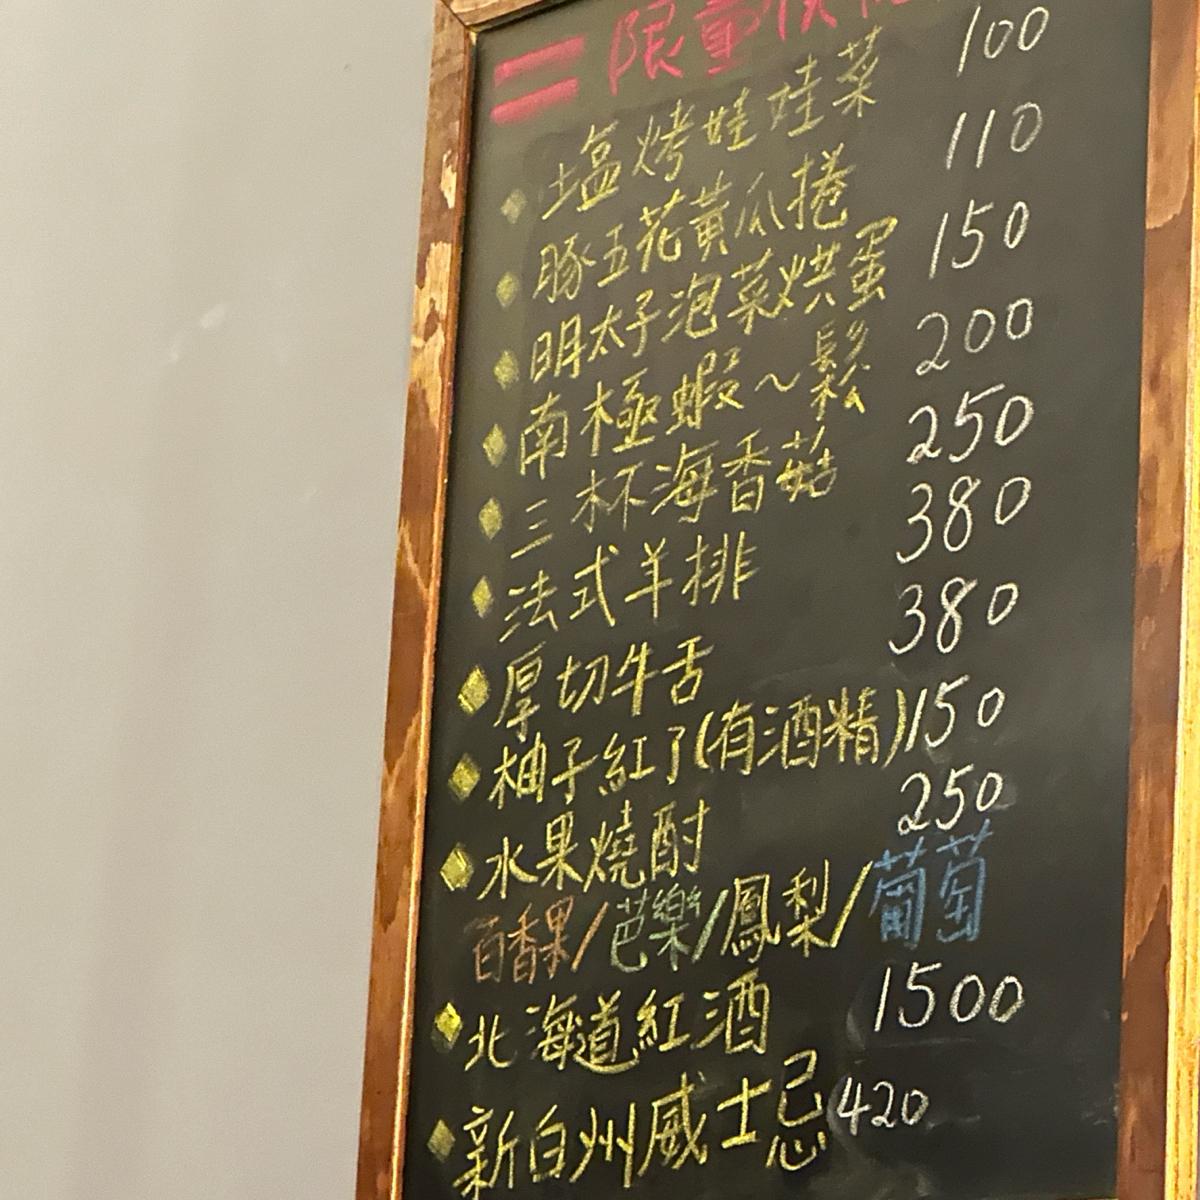 限量供
塩烤娃娃菜 100
豚五花黃瓜捲 110
明太子泡菜烘蛋 150
南極蝦~鬆 200
三杯海香菇 250
法式羊排 380
厚切牛舌 380
柚子紅了(有酒精) 150
水果燒酎 250
百香果/芭樂/鳳梨/葡萄
北海道紅酒 1500
新白州威士忌 420